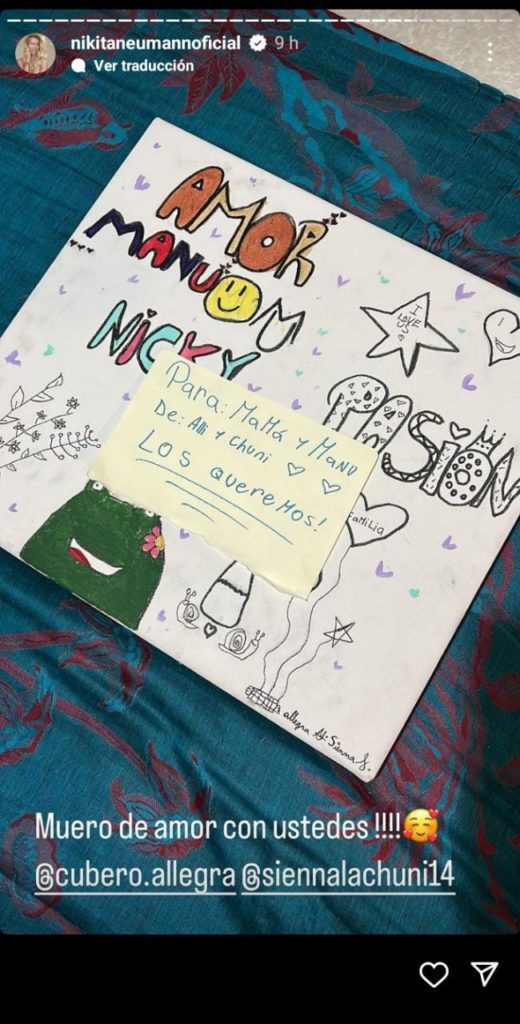 nikitaneumannoficial 9 h
Ver traducción
AMOR
MANU
NICKY
I
LOVE
US
PASIÓN
Para: MaMá y Manu
De: Alli y Chuni
LOS QuereMos!
FaMiLia
allegra
Sienna
Muero de amor con ustedes !!!!🥰
@cubero.allegra @siennalachuni14